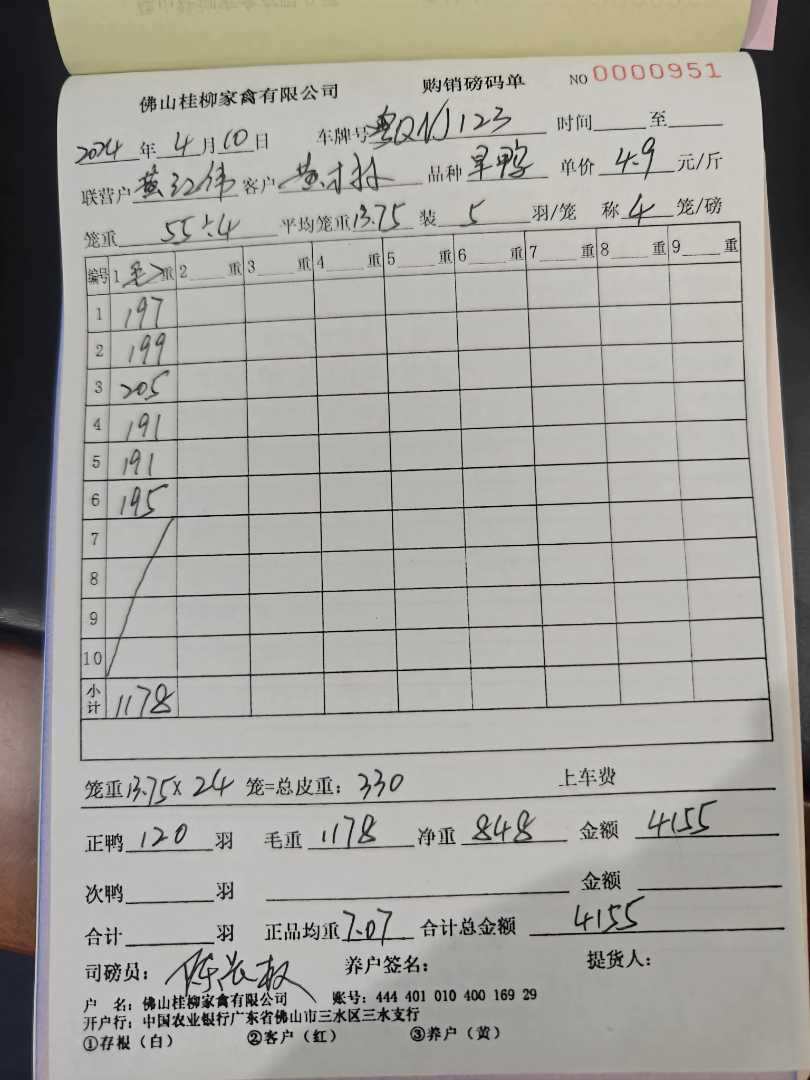 佛山桂柳家禽有限公司 购销磅码单 NO 0000951
2024年4月10日 车牌号 123 时间 至
联营户 黄红伟 客户 黄 林 品种 旱鸭 单价 4.9 元/斤
笼重 55÷4 平均笼重13.75 装 5 羽/笼 称 4 笼/磅
编号 1 毛 重 2 重 3 重 4 重 5 重 6 重 7 重 8 重 9 重
1 197
2 199
3 205
4 191
5 191
6 195
7
8
9
10
小计 1178
笼重13.75×24 笼=总皮重：330 上车费
正鸭 120 羽 毛重 1178 净重 848 金额 4155
次鸭 羽 金额
合计 羽 正品均重 7.07 合计总金额 4155
司磅员： 养户签名： 提货人：
户 名：佛山桂柳家禽有限公司 账号：444 401 010 400 169 29
开户行：中国农业银行广东省佛山市三水区三水支行
①存根（白） ②客户（红） ③养户（黄）